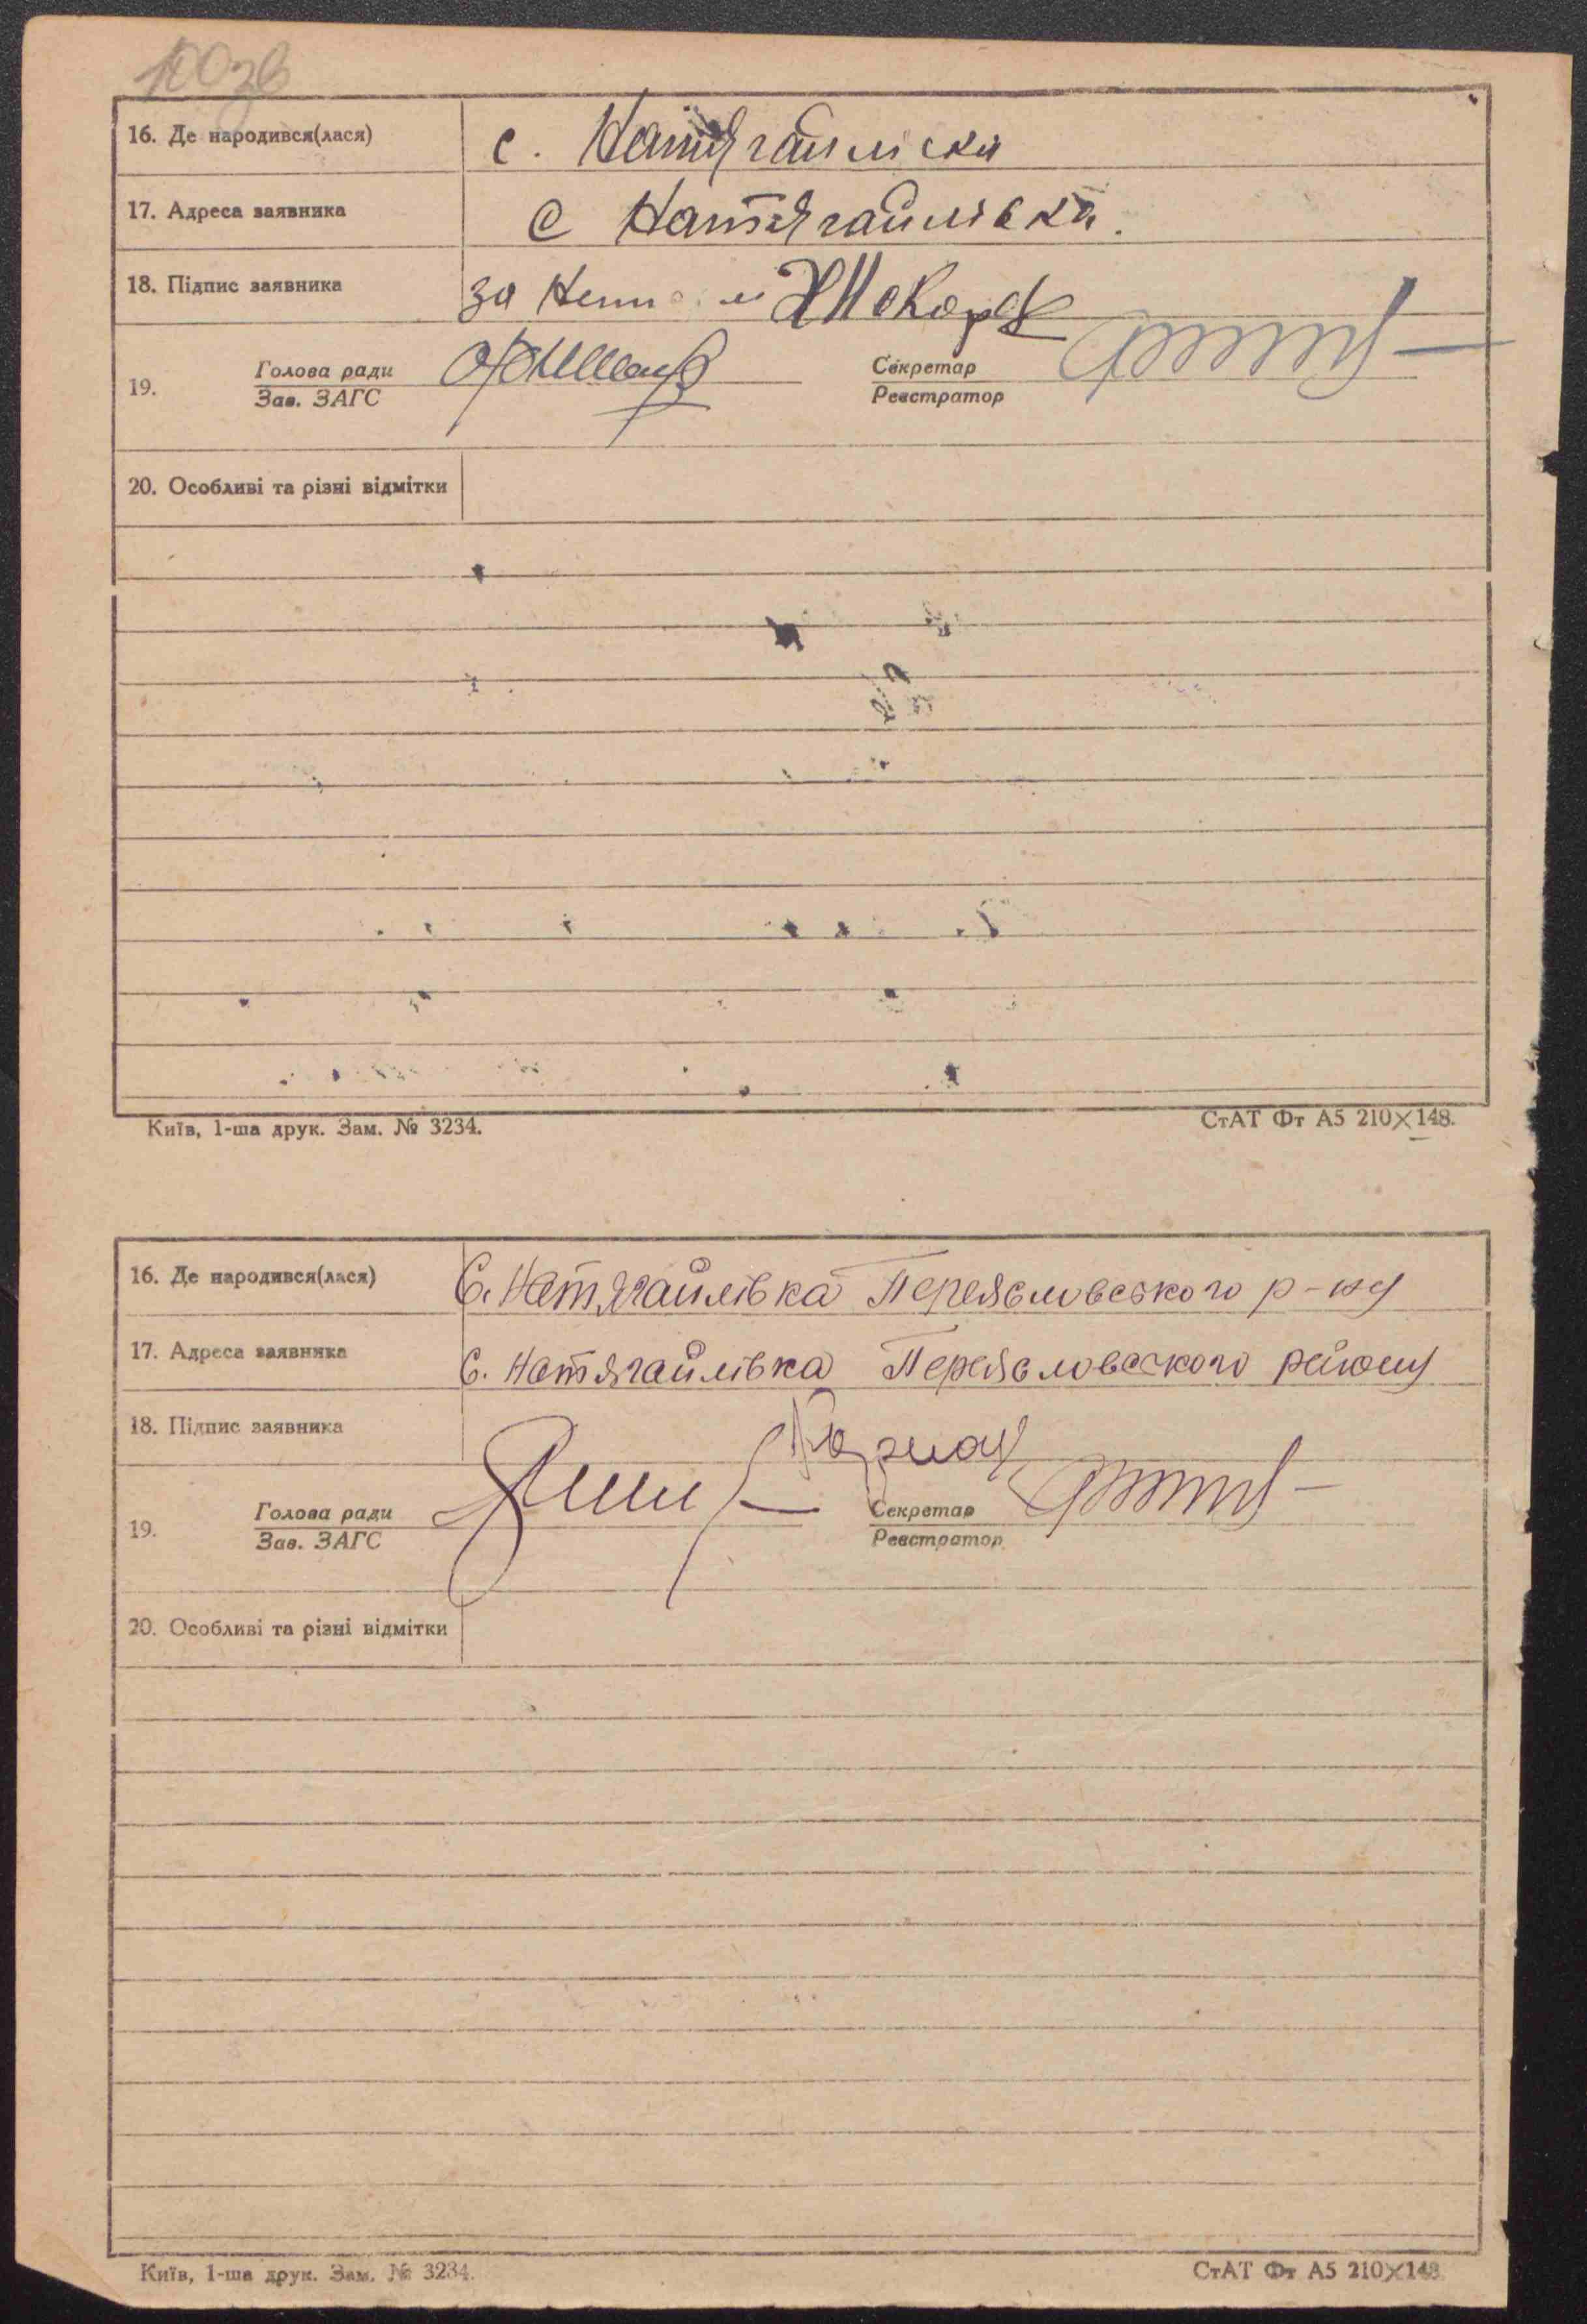 100зв
16. Де народився(лася) с. Натягайлівка
17. Адреса заявника с Натягайлівка.
18. Підпис заявника за
19. Голова ради Секретар
Зав. ЗАГС Реєстратор
20. Особливі та різні відмітки
Київ, 1-ша друк. Зам. № 3234. СтАТ Фт А5 210×148.
16. Де народився(лася) С. Натягайлівка Переясловського р-ну
17. Адреса заявника С. Натягайлівка Переясловського району
18. Підпис заявника
19. Голова ради Секретар
Зав. ЗАГС Реєстратор
20. Особливі та різні відмітки
Київ, 1-ша друк. Зам. № 3234. СтАТ Фт А5 210×148.